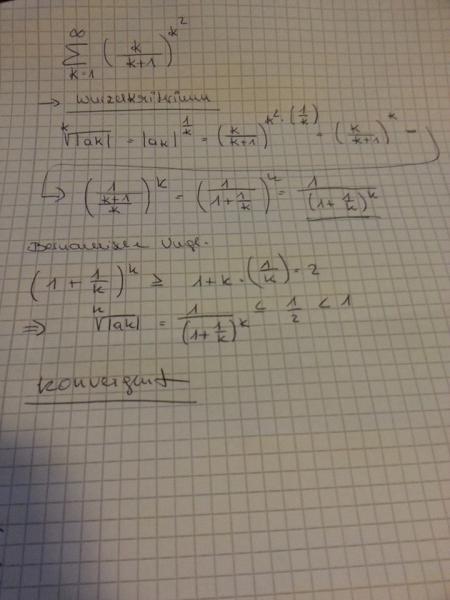 ∞
∑ (k/(k+1))^k²
k=1
→ Wurzelkriterium
ᵏ√|ak| = |ak|^(1/k) = (k/(k+1))^(k²·(1/k)) = (k/(k+1))^k =
→ (1/((k+1)/k))^k = (1/(1+1/k))^k = 1/(1+1/k)^k
Bernoullische Ungl.
(1 + 1/k)^k ≥ 1+k·(1/k) = 2
⇒ ᵏ√|ak| = 1/(1+1/k)^k ≤ 1/2 < 1
konvergent